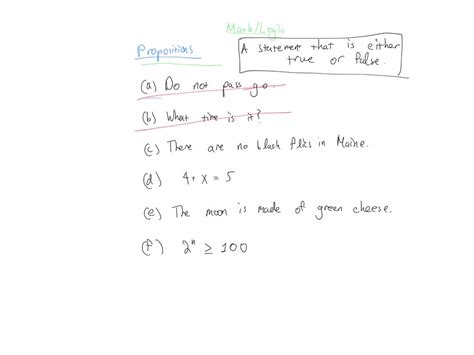 Math/Logic
Propositions
A statement that is either
true or false.
(a) Do not pass go.
(b) What time is it?
(c) There are no black flies in Maine.
(d) 4 + x = 5
(e) The moon is made of green cheese.
(f) 2ⁿ ≥ 100